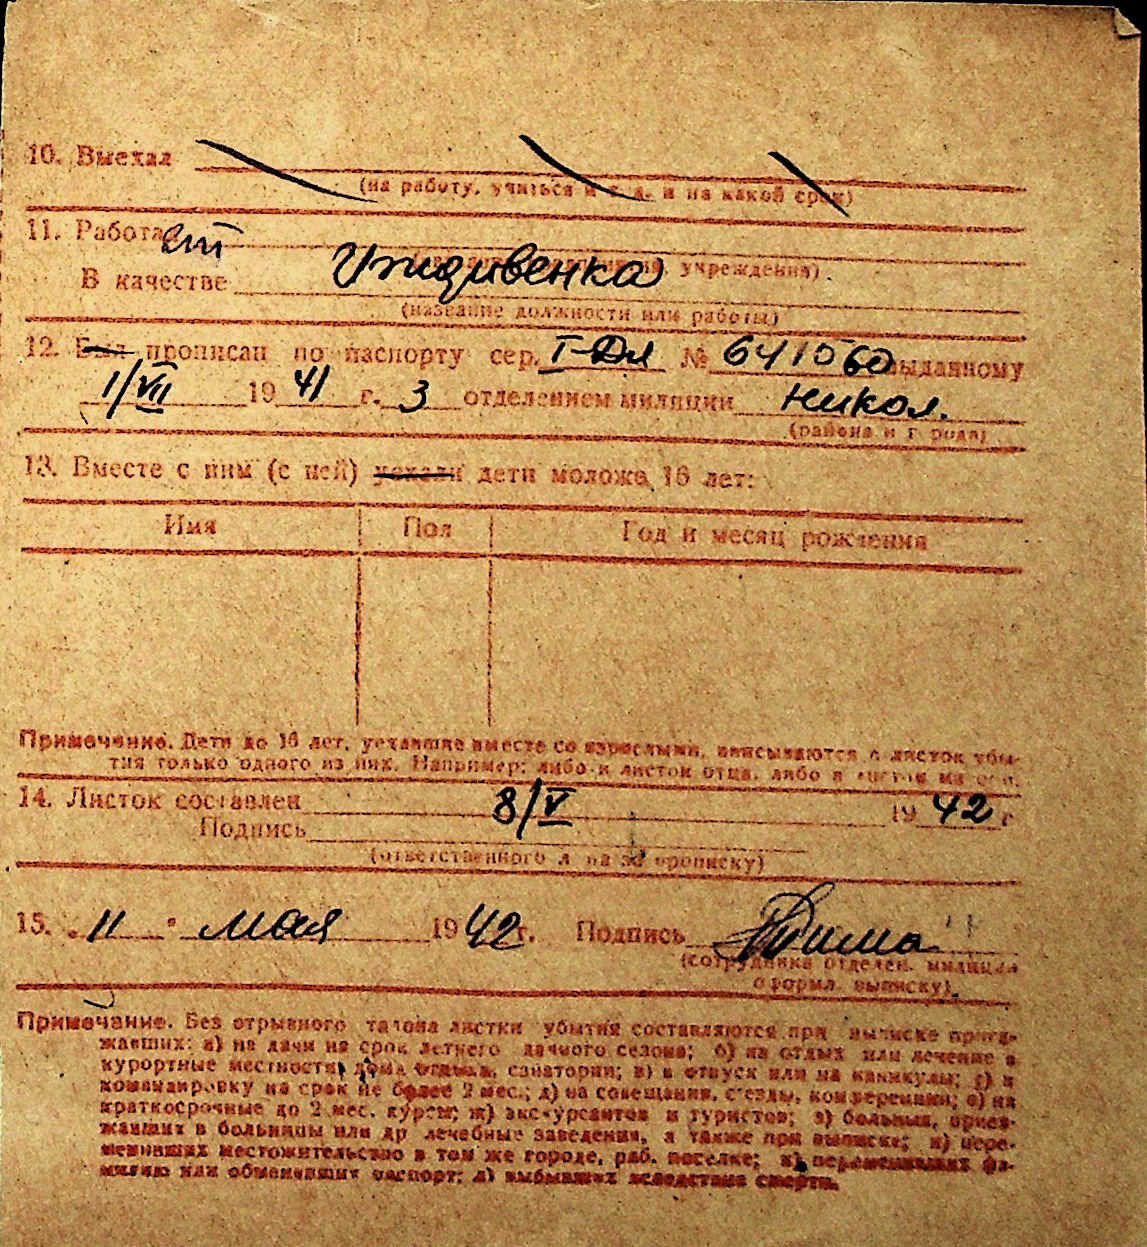 10. Выехал
(на работу, учиться и т. д. и на какой срок)
11. Работал
учреждения)
Иждивенка
В качестве
(название должности или работы)
12. Был прописан по паспорту сер. I-Дл № 641060 выданному
1/VII 1941 г. 3 отделением милиции Никол.
(района и города)
13. Вместе с ним (с ней) уехали дети моложе 16 лет:
Имя Пол Год и месяц рождения
Примечание. Дети до 16 лет, уехавшие вместе со взрослыми, вписываются в листок убы-
тия только одного из них. Например: либо в листок отца, либо в листок матери.
14. Листок составлен 8/V 1942 г
Подпись
(ответственного лица за прописку)
15. „11" мая 1942 г. Подпись
(сотрудника отделен. милиции
оформл. выписку)
Примечание. Без отрывного талона листки убытия составляются при выписке прожи-
жавших: а) на дачи на срок летнего дачного сезона; б) на отдых или лечение в
курортные местности, дома отдыха, санатории; в) в отпуск или на каникулы; г) в
командировку на срок не более 2 мес.; д) на совещания, съезды, конференции; е) на
краткосрочные до 2 мес. курсы; ж) экскурсантов и туристов; з) больных, приез-
жавших в больницы или др лечебные заведения, а также при выписке; и) пере-
менивших местожительство в том же городе, раб. поселке; к) переменивших фа-
милию или обменявших паспорт; л) выбывших вследствие смерти.